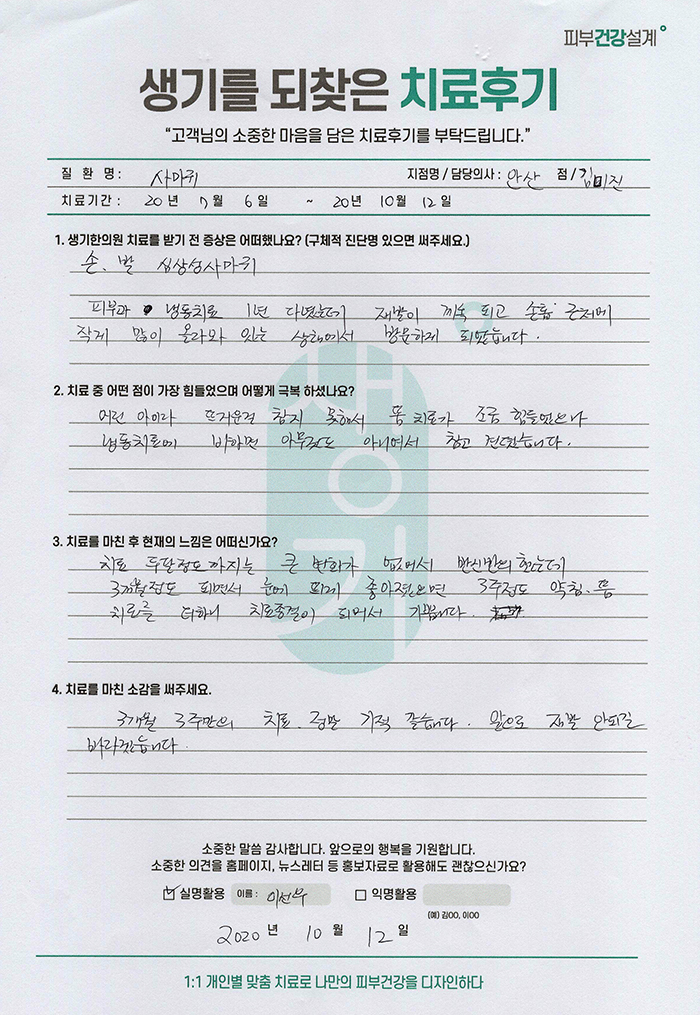 피부건강설계
생기를 되찾은 치료후기
"고객님의 소중한 마음을 담은 치료후기를 부탁드립니다."
질 환 명 : 사마귀 지점명 / 담당의사 : 안산 점 / 김미진
치료기간 : 20 년 7 월 6 일 ~ 20 년 10 월 12 일
1. 생기한의원 치료를 받기 전 증상은 어떠했나요? (구체적 진단명 있으면 써주세요.)
손, 발 심상성사마귀
피부과 냉동치료 1년 다녔는데 재발이 계속 되고 손톱 근처에
작게 많이 올라와 있는 상태에서 방문하게 되었습니다.
2. 치료 중 어떤 점이 가장 힘들었으며 어떻게 극복 하셨나요?
어린 아이라 뜨거운걸 참지 못해서 뜸 치료가 조금 힘들었으나
냉동치료에 비하면 아무것도 아니여서 참고 견뎠습니다.
3. 치료를 마친 후 현재의 느낌은 어떠신가요?
치료 두달정도까지는 큰 변화가 없어서 반신반의 했는데
3개월정도 되면서 눈에 띄게 좋아졌으면 3주정도 약침, 뜸
치료를 더하니 치료종결이 되어서 기쁩니다.
4. 치료를 마친 소감을 써주세요.
3개월 3주만의 치료. 정말 기적 같습니다. 앞으로 재발 안되길
바라겠습니다.
생기
소중한 말씀 감사합니다. 앞으로의 행복을 기원합니다.
소중한 의견을 홈페이지, 뉴스레터 등 홍보자료로 활용해도 괜찮으신가요?
실명활용 이름 : 익명활용
(예) 김OO, 이OO
2020 년 10 월 12 일
1:1 개인별 맞춤 치료로 나만의 피부건강을 디자인하다